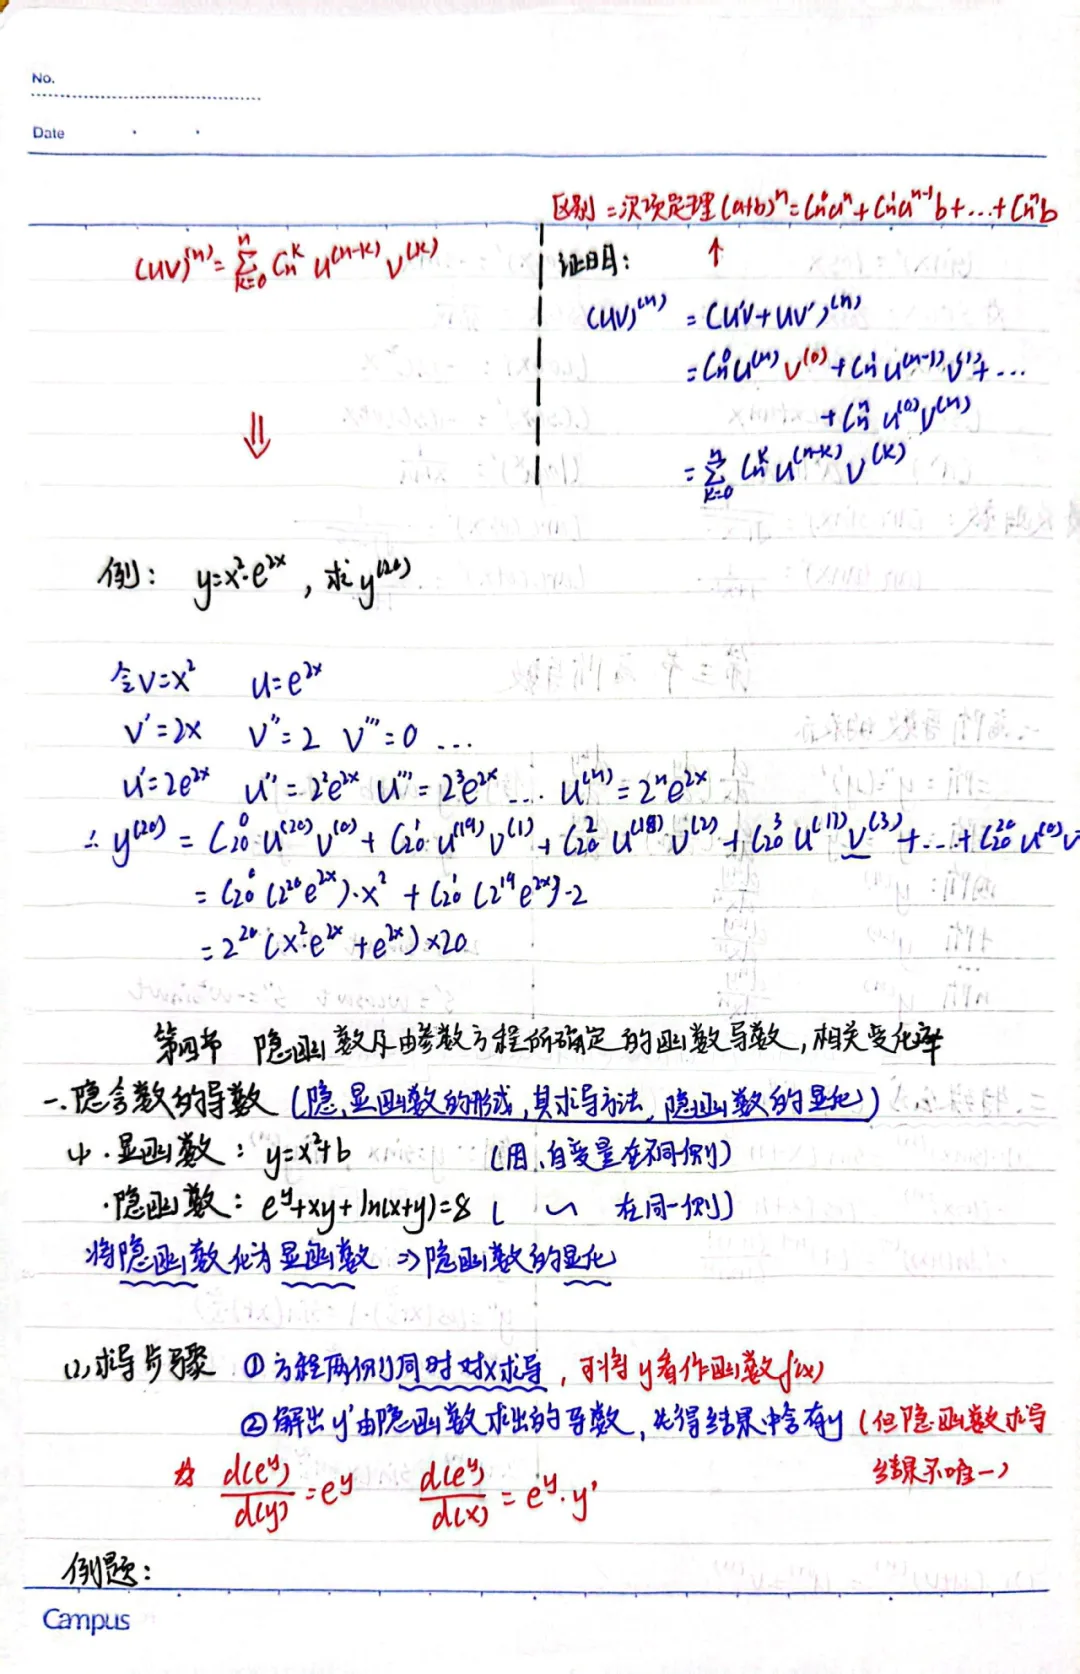 No.
Date
区别 二次项定理 (a+b)ⁿ = Cₙ⁰aⁿ + Cₙ¹aⁿ⁻¹b + … + Cₙⁿb
(uv)⁽ⁿ⁾ = Σₖ₌₀ⁿ Cₙᵏ u⁽ⁿ⁻ᵏ⁾ v⁽ᵏ⁾
↑
证明:
(uv)⁽ⁿ⁾ = (u'v+uv')⁽ⁿ⁾
= Cₙ⁰u⁽ⁿ⁾v⁽⁰⁾ + Cₙ¹u⁽ⁿ⁻¹⁾v⁽¹⁾ + …
+ Cₙⁿ u⁽⁰⁾v⁽ⁿ⁾
= Σₖ₌₀ⁿ Cₙᵏ u⁽ⁿ⁻ᵏ⁾ v⁽ᵏ⁾
⇓
例: y=x²·e²ˣ, 求y⁽²⁰⁾
令v=x² u=e²ˣ
v'=2x v''=2 v'''=0 …
u'=2e²ˣ u''=2²e²ˣ u'''=2³e²ˣ … u⁽ⁿ⁾=2ⁿe²ˣ
∴ y⁽²⁰⁾ = C₂₀⁰u⁽²⁰⁾v⁽⁰⁾ + C₂₀¹u⁽¹⁹⁾v⁽¹⁾ + C₂₀²u⁽¹⁸⁾v⁽²⁾ + C₂₀³u⁽¹⁷⁾v⁽³⁾ + … + C₂₀²⁰u⁽⁰⁾v
= C₂₀⁰(2²⁰e²ˣ)·x² + C₂₀¹(2¹⁹e²ˣ)·2
= 2²⁰(x²·e²ˣ+e²ˣ)×20
第四节 隐函数及由参数方程所确定的函数导数,相关变化率
一.隐含数的导数(隐、显函数的形式,其求导方法,隐函数的显化)
(1)·显函数: y=x²+b (因、自变量在不同侧)
·隐函数: eʸ+xy+ln(x+y)=8 ( ~ 在同一侧)
将隐函数化为显函数 ⇒ 隐函数的显化
(2)求导步骤 ①方程两侧同时对x求导,将y看作函数f(x)
②解出y'由隐函数求出的导数,允许结果中含有y(但隐函数求导
结果不唯一)
☆ d(eʸ)/d(y) = eʸ d(eʸ)/d(x) = eʸ·y'
例题:
Campus